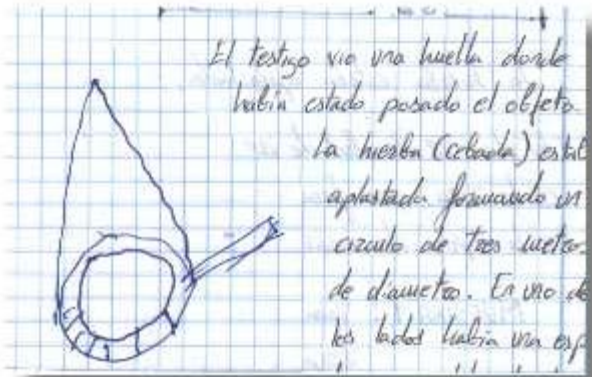 El testigo vio una huella donde
había estado posado el objeto.
La hierba (cebada) estab
aplastada formando un
círculo de tres metros
de diametro. En uno de
los lados había una esp